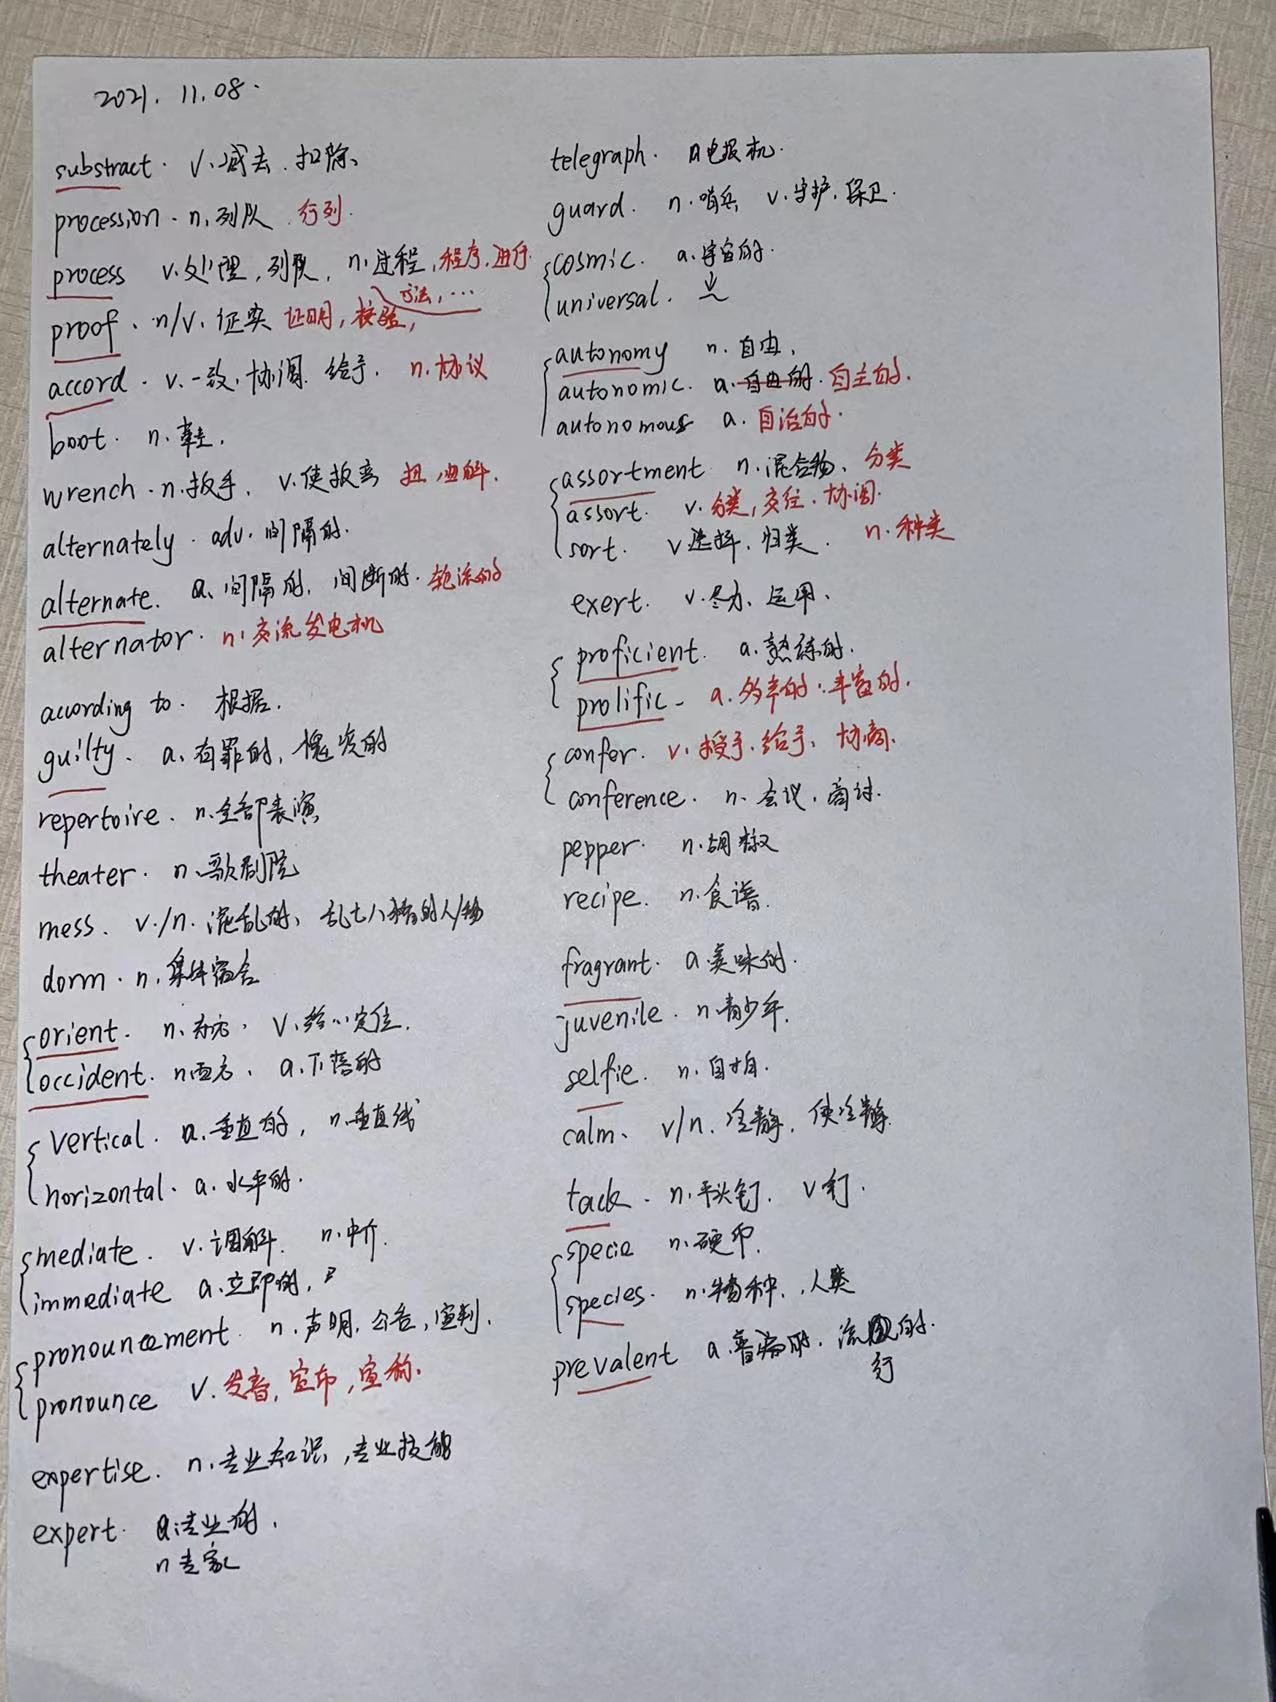 2021.11.08.
substract. v.减去.扣除、
procession. n.列队.行列.
process v.处理,列队, n.过程,程序,进行
方法,…
proof. n/v.证实 证明,校验,
accord. v.一致,协调.给予. n.协议
boot. n.鞋.
wrench. n.扳手. v.使扳弯 扭,曲解.
alternately. adv.间隔的.
alternate. a.间隔的,间断的.轮流的
alternator. n.交流发电机
acording to. 根据.
guilty. a.有罪的,愧疚的
repertoire. n.全部表演
theater. n.歌剧院
mess. v./n.混乱的、乱七八糟的人/物
dorm. n.集体宿舍
orient. n.东方. v.给…定位.
occident. n西方. a.下落的
vertical. a.垂直的, n.垂直线
horizontal. a.水平的.
mediate. v.调解. n.中介.
immediate a.立即的,
pronouncement. n.声明,公告,宣判.
pronounce v.发音,宣布,宣称.
expertise. n.专业知识,专业技能
expert. a.专业的.
n专家
telegraph. n电报机.
guard. n.哨兵 v.守护.保卫.
cosmic. a.宇宙的.
universal. ↓
autonomy n.自由.
autonomic. a.自由的.自主的.
autonomous a.自治的.
assortment n.混合物. 分类
assort. v.分类,交往.协调.
sort. v选择.归类. n.种类
exert. v.尽力、运用、
proficient. a.熟练的.
prolific. a.多产的.丰富的.
confer. v.授予.给予、协商.
conference. n.会议.商讨.
pepper. n.胡椒
recipe. n.食谱.
fragrant. a.美味的.
juvenile. n.青少年.
selfie. n.自拍.
calm. v/n.冷静,使冷静.
tack. n.平头钉. v钉.
specie n.硬币.
species. n.物种.人类
prevalent a.普遍的.流的.
行